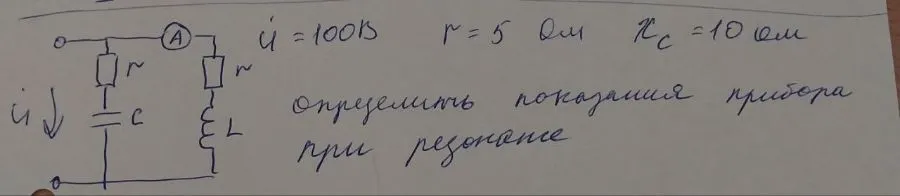 A
U̇ = 100В r = 5 Ом X_C = 10 Ом
r
r
U̇
C
L
определить показания прибора
при резонансе